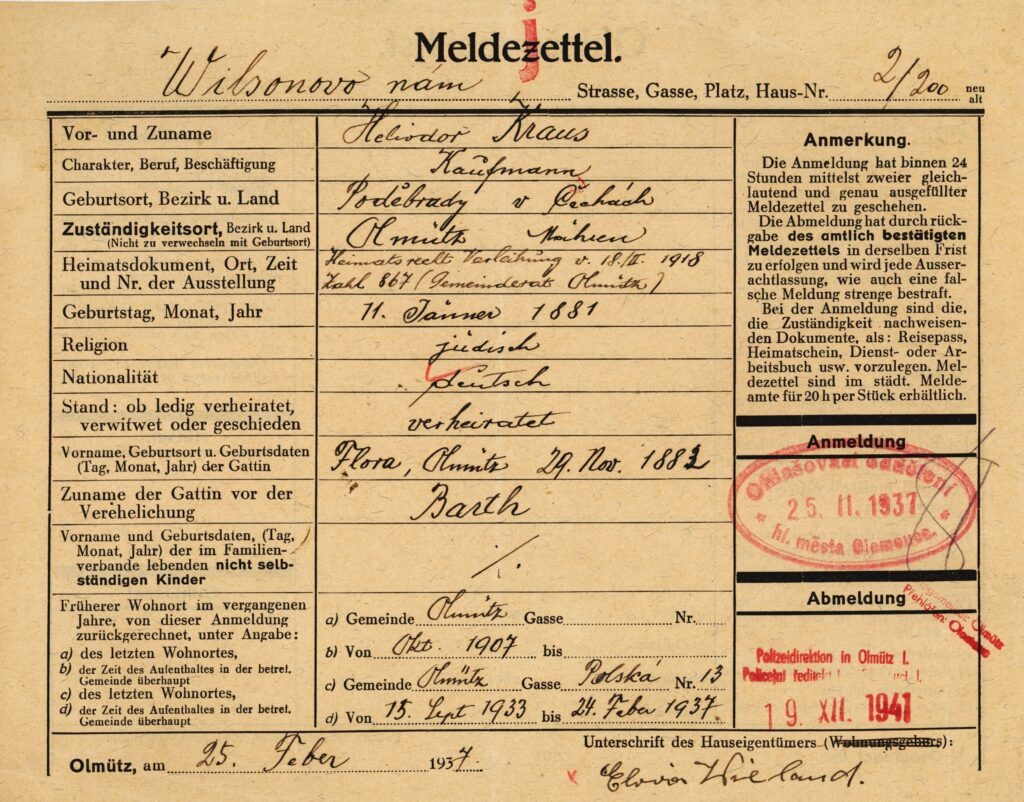 j
Meldezettel.
Wilsonovo nám Strasse, Gasse, Platz, Haus-Nr. 2/200 neu alt
Vor- und Zuname Heliodor Kraus
Charakter, Beruf, Beschäftigung Kaufmann
Geburtsort, Bezirk u. Land Poděbrady v Čechách
Zuständigkeitsort, Bezirk u. Land
(Nicht zu verwechseln mit Geburtsort) Olmütz Mähren
Heimatsdokument, Ort, Zeit Heimatsrecht Verleihung v. 18./II. 1918
und Nr. der Ausstellung Zahl 867 (Gemeinderat Olmütz)
Geburtstag, Monat, Jahr 11. Jänner 1881
Religion jüdisch
Nationalität deutsch
Stand: ob ledig verheiratet,
verwitwet oder geschieden verheiratet
Vorname, Geburtsort u. Geburtsdaten
(Tag, Monat, Jahr) der Gattin Flora, Olmütz 29. Nov. 1882
Zuname der Gattin vor der
Verehelichung Barth
Vorname und Geburtsdaten, (Tag,
Monat, Jahr) der im Familien-
verbande lebenden nicht selb-
ständigen Kinder ./.
Früherer Wohnort im vergangenen
Jahre, von dieser Anmeldung
zurückgerechnet, unter Angabe:
a) des letzten Wohnortes,
b) der Zeit des Aufenthaltes in der betret.
Gemeinde überhaupt
c) des letzten Wohnortes,
d) der Zeit des Aufenthaltes in der betret.
Gemeinde überhaupt
a) Gemeinde Olmütz Gasse Nr.
b) Von Okt. 1907 bis
c) Gemeinde Olmütz Gasse Polská Nr. 13
d) Von 15. Sept 1933 bis 24. Feber 1937.
Anmerkung.
Die Anmeldung hat binnen 24
Stunden mittelst zweier gleich-
lautend und genau ausgefüllter
Meldezettel zu geschehen.
Die Abmeldung hat durch rück-
gabe des amtlich bestätigten
Meldezettels in derselben Frist
zu erfolgen und wird jede Ausser-
achtlassung, wie auch eine fal-
sche Meldung strenge bestraft.
Bei der Anmeldung sind die,
die Zuständigkeit nachweisen-
den Dokumente, als: Reisepass,
Heimatschein, Dienst- oder Ar-
beitsbuch usw. vorzulegen. Mel-
dezettel sind im städt. Melde-
amte für 20 h per Stück erhältlich.
Anmeldung
Ohlašovací oddělení
25. II. 1937
hl. města Olomouce.
Abmeldung
Olmütz
Přehlášen: Olomouc
Polizeidirektion in Olmütz I.
19. XII. 1941
Olmütz, am 25. Feber 1937.
Unterschrift des Hauseigentümers (Wohnungsgebers):
x Wieland.